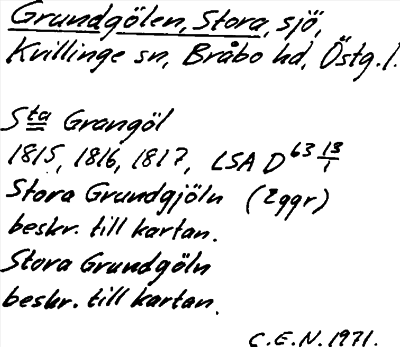 Grundgölen, Stora, sjö,
Kvillinge sn, Bråbo hd, Östg.l.
Sta Grangöl
1815, 1816, 1817, LSA D 63 13/1
Stora Grundgjöln (2ggr)
beskr. till kartan.
Stora Grundgöln
beskr. till kartan.
C.E.N. 1971.